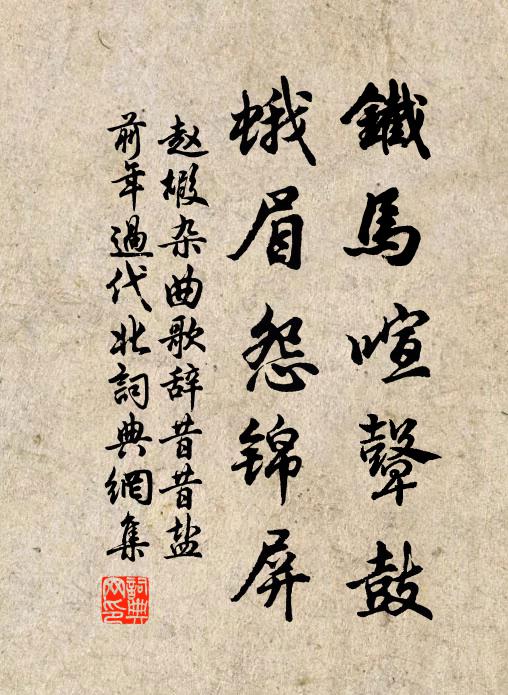 鐵馬喧鼙鼓
蛾眉怨锦屏
赵嘏杂曲歌辞昔昔盐
前年過代北詞典網集
詞典網印